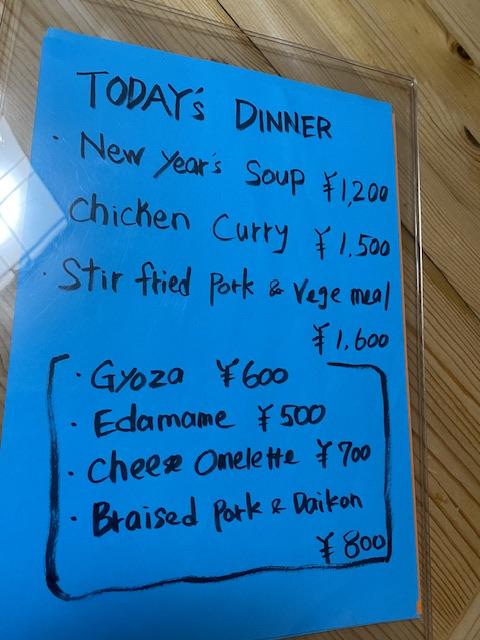 TODAY's DINNER
・New Year's Soup ¥1,200
Chicken Curry ¥1,500
・Stir fried Pork & Vege meal
¥1,600
・Gyoza ¥600
・Edamame ¥500
・Cheese Omelette ¥700
・Braised Pork & Daikon
¥800